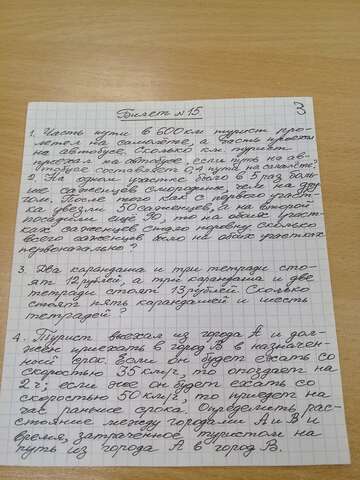 Билет №15.
3
1. Часть пути в 600 км турист про-
летел на самолёте, а часть проехал
на автобусе. Сколько км турист
проехал на автобусе, если путь на ав-
тобусе составляет 0,4 пути на самолёте?
2. На одном участке было в 5 раз боль-
ше саженцев смородины, чем на дру-
гом. После того как с первого участ-
ка увезли 50 саженцев, а на втором
посадили ещё 90, то на обоих участ-
ках саженцев стало поровну. Сколько
всего саженцев было на обоих участках
первоначально?
3. Два карандаша и три тетради сто-
ят 12 рублей, а три карандаша и две
тетради стоят 13 рублей. Сколько
стоят пять карандашей и шесть
тетрадей?
4. Турист выехал из города А и дол-
жен приехать в город В в назначен-
ный срок. Если он будет ехать со
скоростью 35 км/ч, то опоздает на
2 ч; если же он будет ехать со
скоростью 50 км/ч, то приедет на
час раньше срока. Определить рас-
стояние между городами А и В и
время, затраченное туристом на
путь из города А в город В.